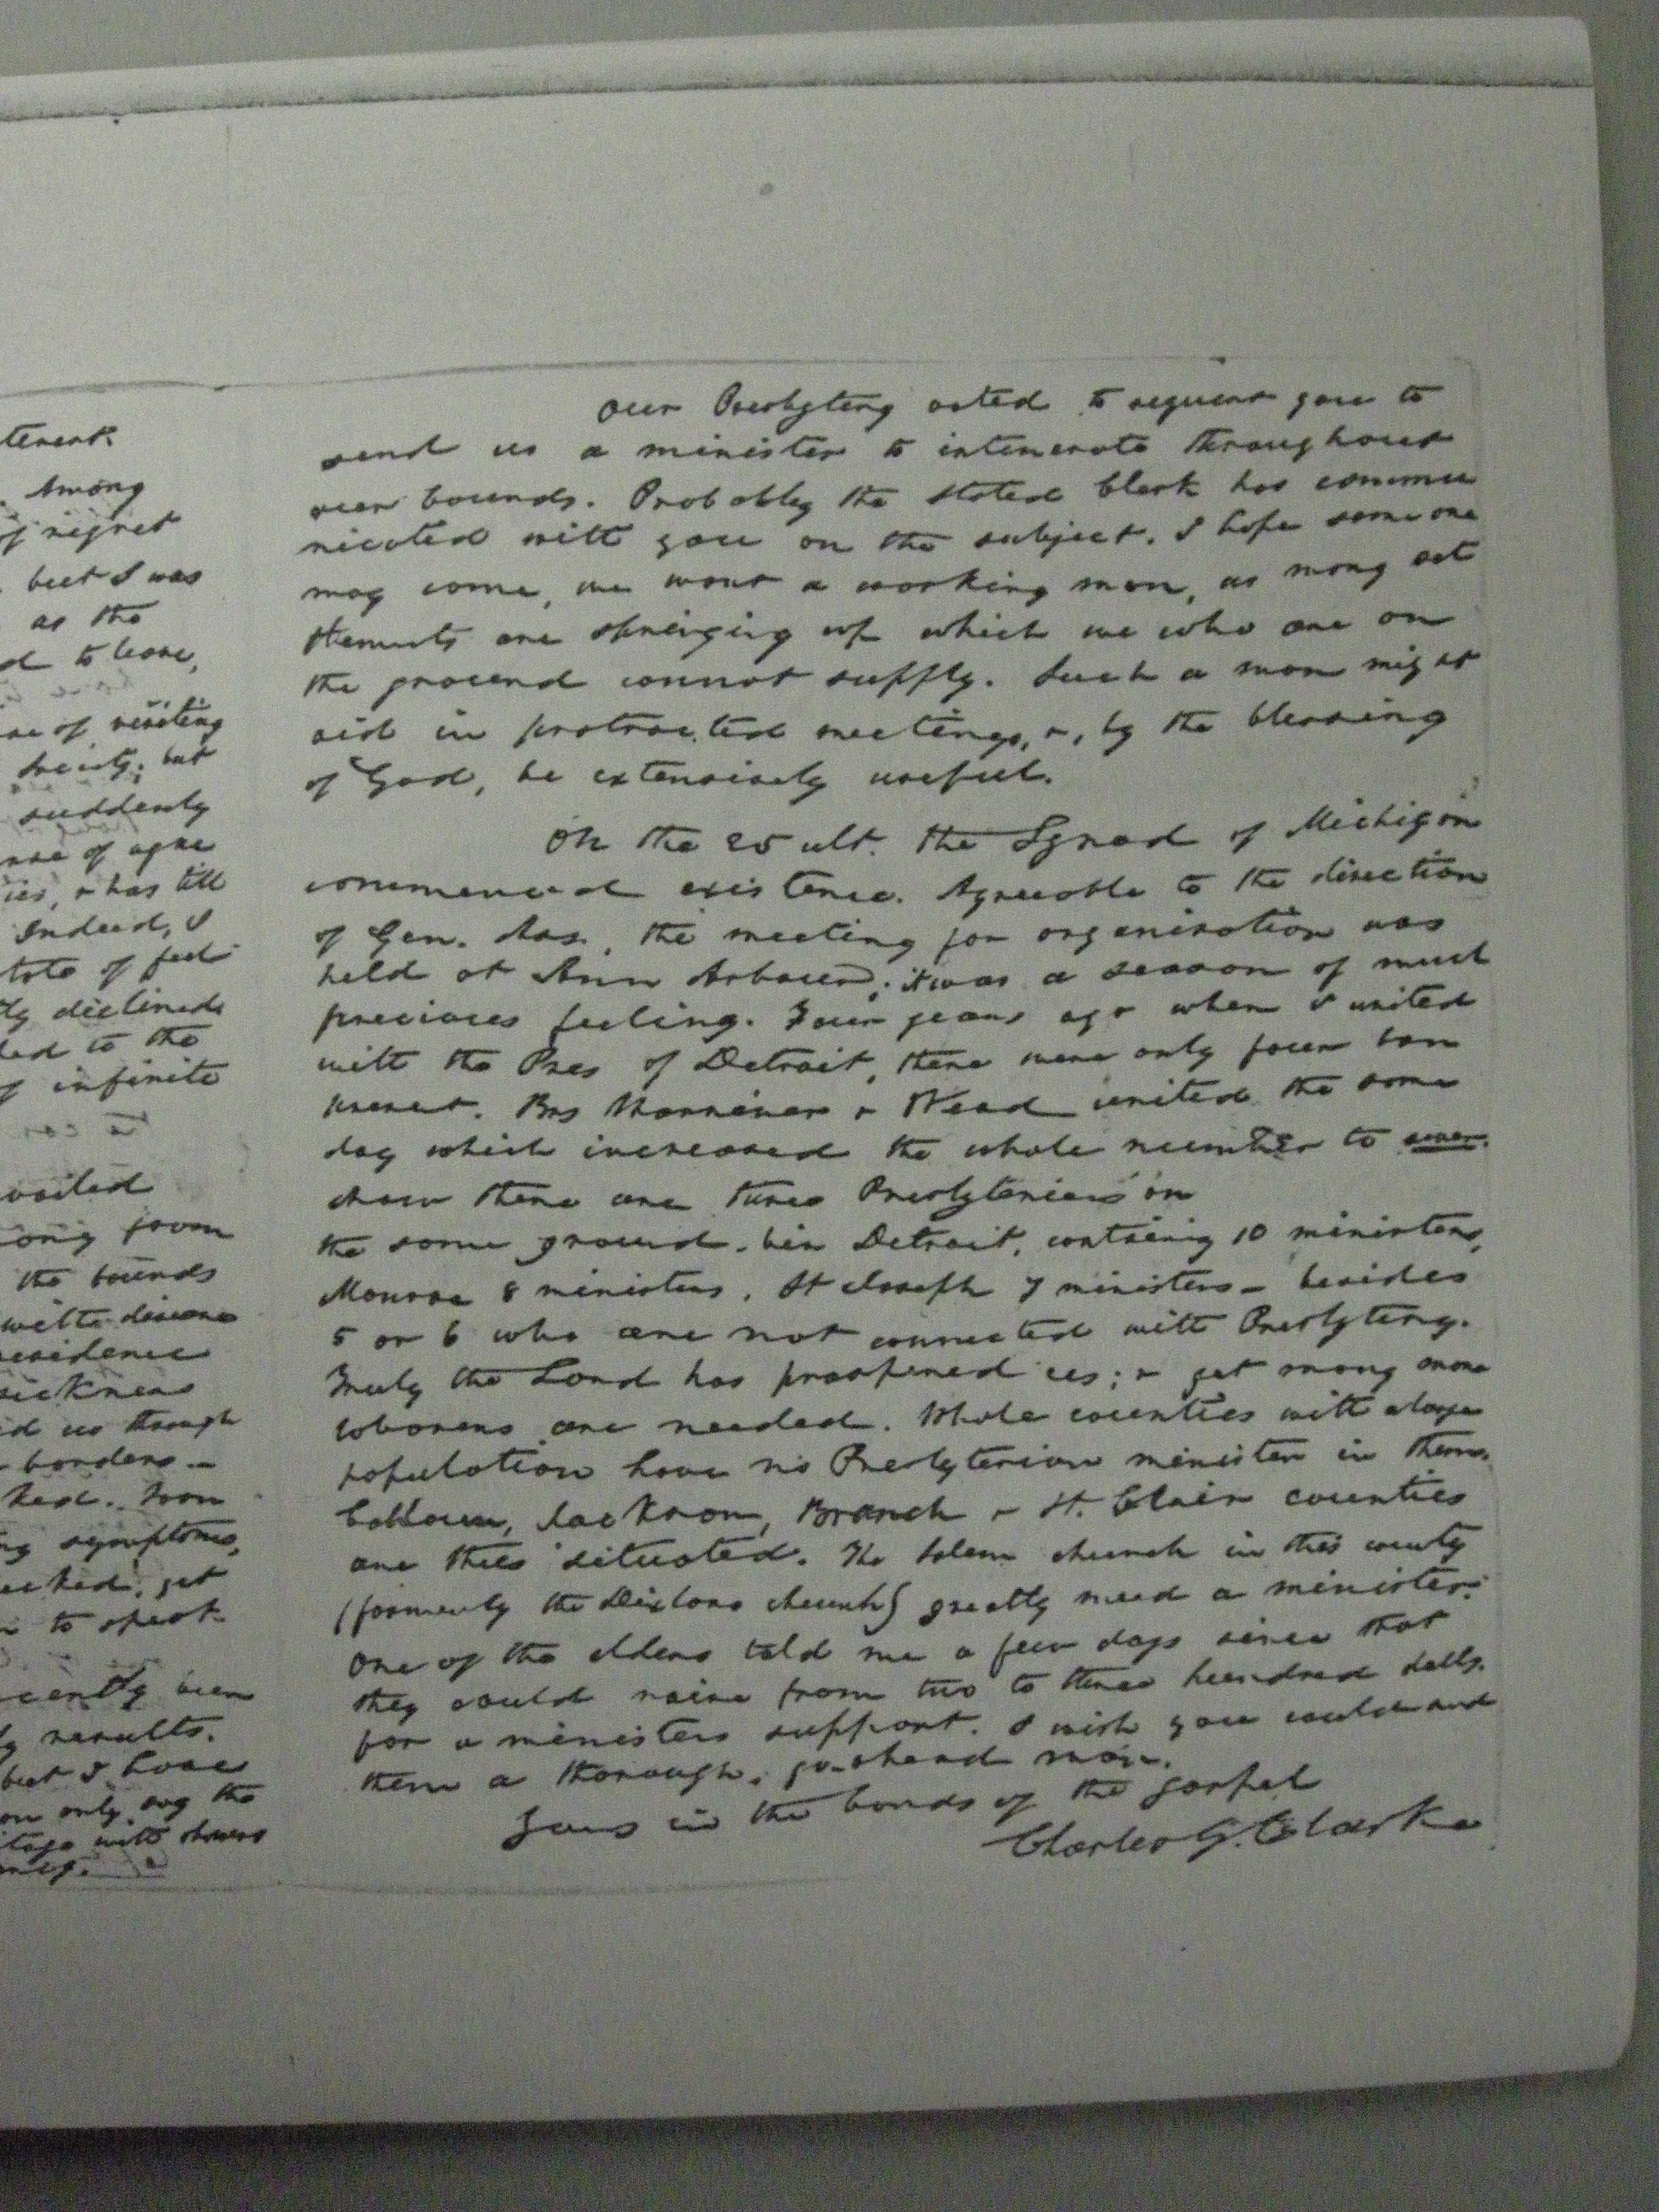 tenent.
Among
of regret
but I was
as the
to leave,
of visiting
Society; but
suddenly
of ague
& has till
Indeed, I
state of feel
declined
to the
of infinite
from
the bounds
residence
sickness
us through
borders _
Soon
symptoms,
yet
to speak
recently been
results.
but I have
only say the
with showers
Our Presbytery voted to request you to
send us a minister to intenerate throughout
our bounds. Probably the stated Clerk has commu
nicated with you on the subject. I hope some one
may come, we want a working man, as many set
tlemnts are springing up which we who are on
the ground cannot supply. Such a man might
aid in protracted meetings, &, by the blessing
of God, be extensively useful.
On the 25 ult. the Synod of Michigan
commenced existence. Agreeable to the direction
of Gen. Ass., the meeting for organization was
held at Ann Arbour; it was a season of much
precious feeling. Four years ago when I united
with the Pres of Detroit, there were only four
Bros & Read united the same
day which increased the whole number to seven.
Now there are three Presbyteries on
the same ground. Viz Detroit, containig 10 ministers,
Monroe 8 ministers, St Joseph 7 ministers – besides
5 or 6 who are not connected with Presbytery.
Truly the Lord has prospered us; & yet many more
laborers are needed. Whole counties with a large
population have no Presbyterian minister in them.
Calhoun, Jackson, Branch & St. Clair counties
are thus situated. The Salem church in this county
(formerly the Dixboro church) greatly need a minister.
One of the elders told me a few days since that
they could raise from two to three hundred dolls.
for a ministers support. I wish you could send
them a thorough, go-ahead man.
Yours in the bonds of the gospel
Charles G. Clarke